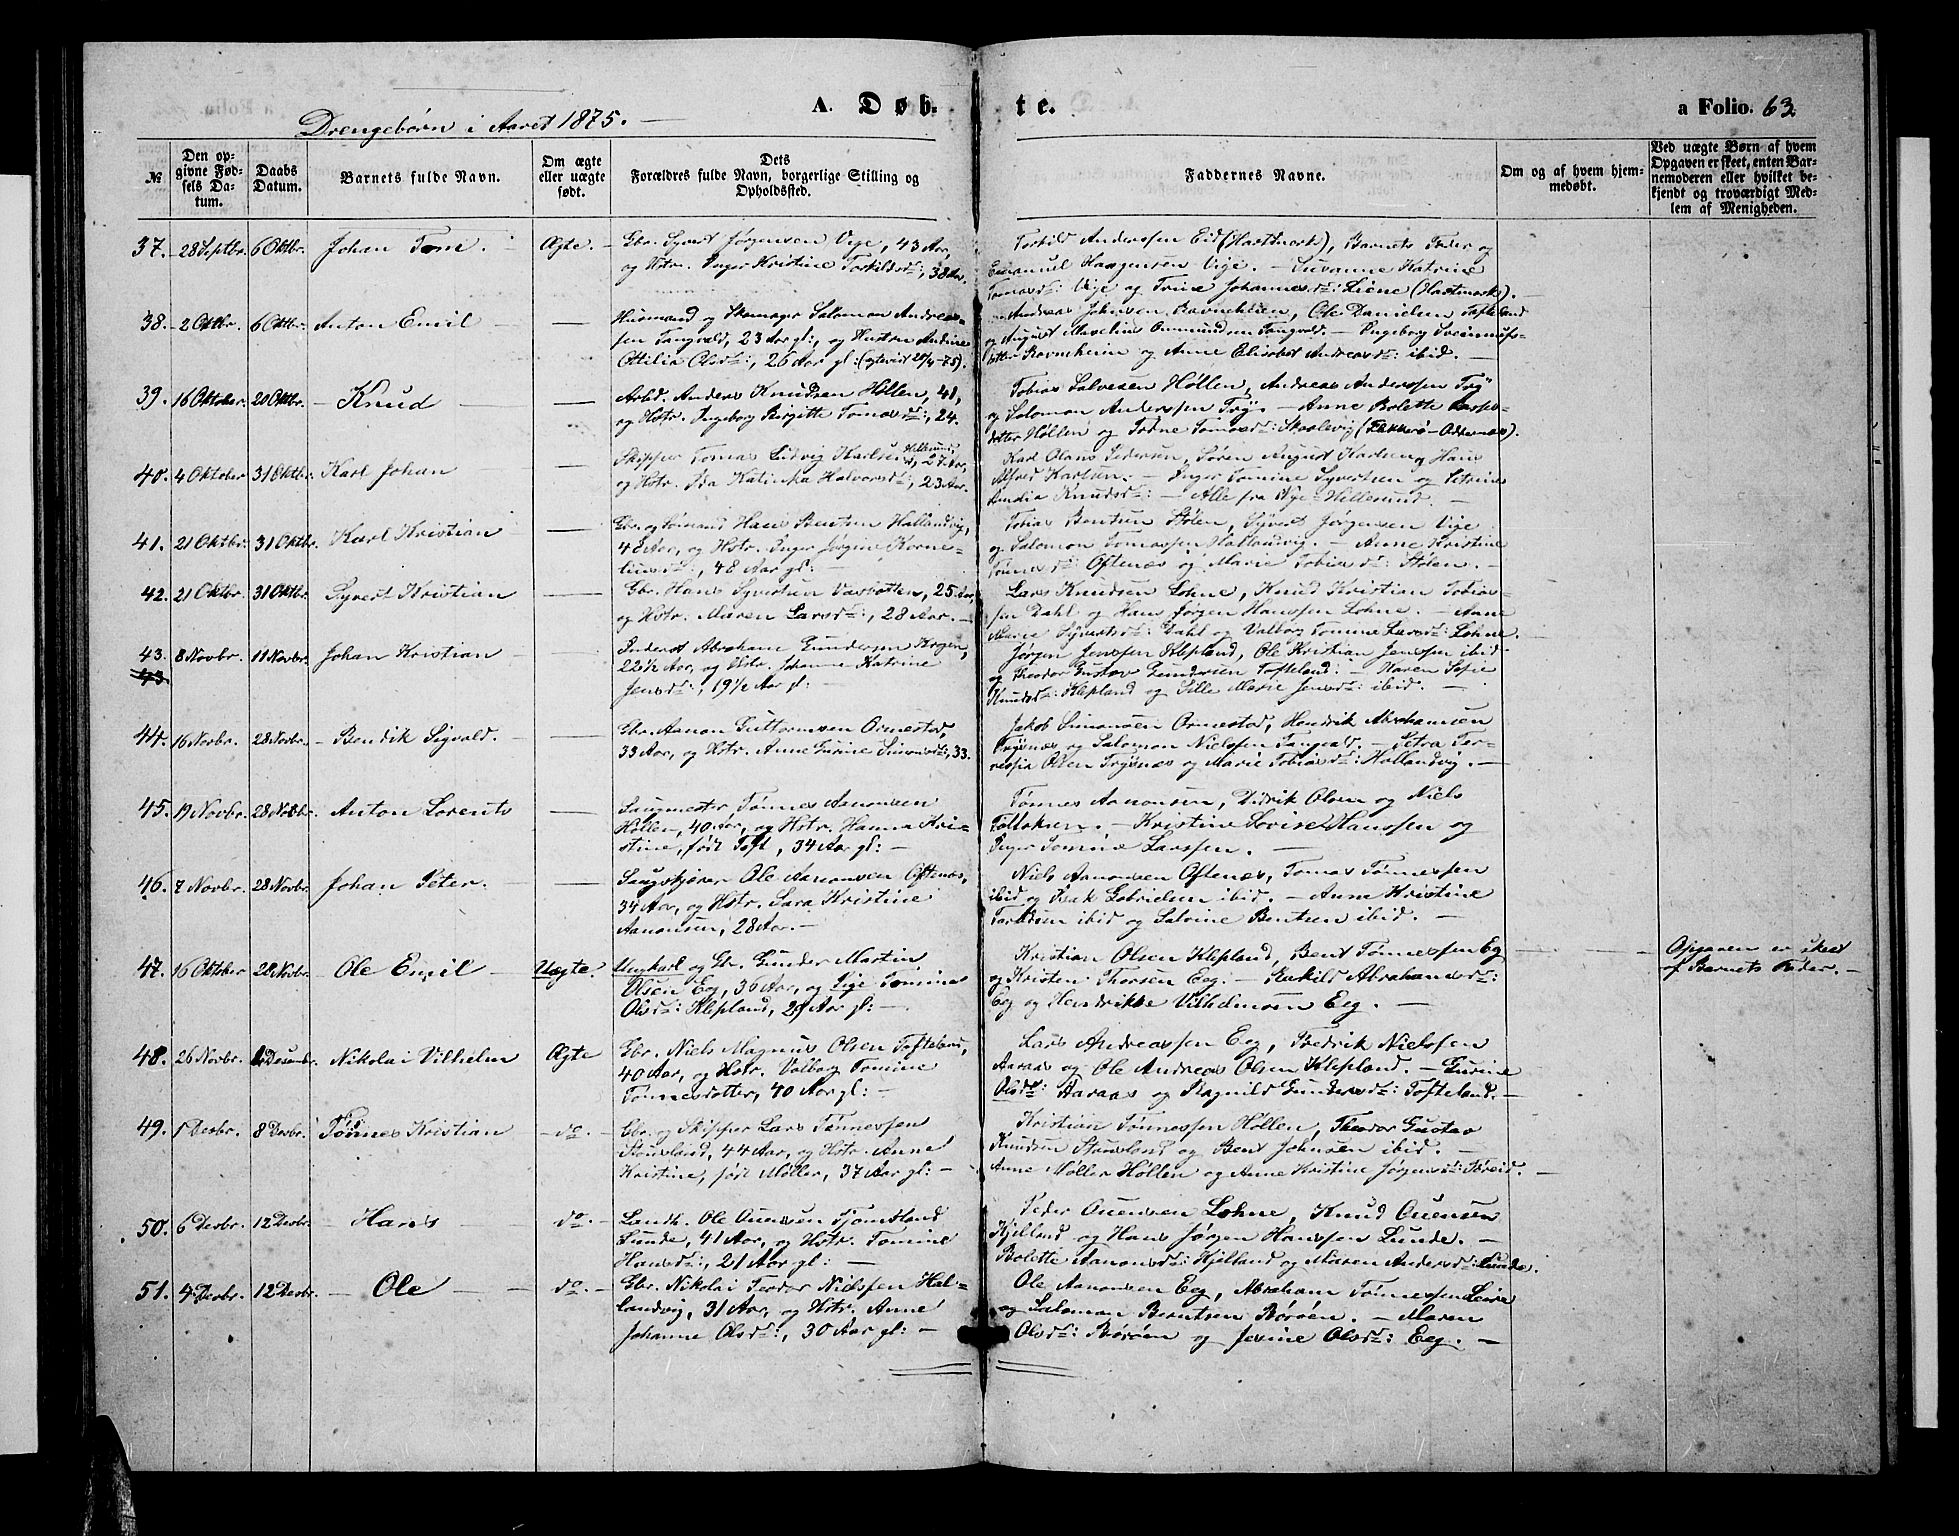 A. Døb te.
a Folio. 63
Drengebørn i Aaret 1875.
№ Den opgivne Fødsels Datum. Daabs Datum. Barnets fulde Navn. Om ægte eller uægte født. Dets Forældres fulde Navn, borgerlige Stilling og Opholdssted. Faddernes Navne. Om og af hvem hjemmedøbt. Ved uægte Børn af hvem Opgaven er skeet, enten Barnemoderen eller hvilket bekjendt og troværdigt Medlem af Menigheden.
37. 28 Septbr. 6 Oktbr. Johan Tom. Ægte. Gbr. Syvert Jørgensen Vige, 43 Aar,
og Hstr. Inger Kristine Torkildsdr:, 38 Aar.
Torkild Anderssen Eid (Hartmark), Barnets Fader og
Emanuel Haagensen Vige. – Susanne Katrine
Tomasdr: Vige og Trine Johannesdr: Liene (Hartmark). –
38. 2 Oktbr. 6 Oktbr. Anton Emil – Husmand og Skomager Salomon Andreas-
sen Tangvald, 23 Aar gl:, og Hustru Andrine
Ottilia Olsdr:, 26 Aar gl: (gteviet 20/4-75).
Andreas Johnsen Ravneheien, Ole Danielsen Tofteland
og August Marselius Ommundsen Tangvald. – Ingeborg Sveinungs-
datter Ravneheien og Anne Elisabet Andreasdr: ibid. –
39. 16 Oktober 20 Oktbr. – Knud – Arbd. Anders Knudsen Høllen, 41,
og Hstr. Ingeborg Birgitte Tomasdr:, 24.
Tobias Salvesen Høllen, Andreas Anderssen Try
og Salomon Anderssen Try. – Anne Bolette Kaspers-
datter Høllen og Trine Tomasdr: Skaalevig (Flekkerø-Oddernes).
40. 4 Oktober 31 Oktbr. Karl Johan – Skipper Tomas Ludvig Karlsen Hillesund, 27 Aar,
og Hstr. Ida Katinka Halvorsdr:, 23 Aar.
Karl Olaus Pedersen, Søren August Karlsen og Hans
Alfred Karlsen. – Inger Tomine Syvertsen og Petrine
Amalia Knudsdr: – Alle fra Nye-Hillesund. –
41. 21 Oktbr. 31 Oktbr. Karl Kristian – Gbr. og Sømand Hans Bentsen Hallandvig,
48 Aar, og Hstr. Inger Jørgine Korne-
liusdr:, 48 Aar gl: –
Tobias Bentsen Stølen, Syvert Jørgensen Vige
og Salomon Tomassen Hallandvig. – Anne Kristine
Tønnesdr: Oftenæs og Marie Tobiasdr: Stølen. –
42. 21 Oktbr. 31 Oktbr. Syvert Kristian – Gbr. Hans Syvertsen Vasbotten, 25 Aar,
og Hstr. Maren Larsdr:, 28 Aar. –
Lars Knudsen Lohne, Knud Kristian Tobias-
sen Dahl og Hans Jørgen Hanssen Lohne. – Anne
Marie Syvertsdr: Dahl og Valborg Tomine Larsdr: Lohne.
43. 8 Novbr. 11 Novbr. Johan Kristian – Inderst Abraham Gundersen Krogen,
22½ Aar, og Hstr. Johanne Katrine
Jensdr:, 19½ Aar gl: –
Jørgen Jenssen Klepland, Ole Kristian Jenssen ibid
og Theodor Gustav Gundersen Tofteland. – Maren Sofie
Knudsdr: Klepland og Sille Marie Jensdr: ibid. –
43
44. 16 Novbr. 28 Novbr. – Bendik Sigvald. – Gbr. Aanon Guttormsen Ormestad,
33 Aar, og Hstr. Anne Gurine Simonsdr:, 33.
Jakob Simonsen Ormestad, Hendrik Abrahamsen
Trysnæs og Salomon Nielsen Tangvald. – Petra Ter-
resia Olsen Trysnæs og Marie Tobiasdr: Hallandvig. –
45. 19 Novbr. 28 Novbr. Anton Lorents – Saugmester Tønnes Aanonsen
Høllen, 40 Aar, og Hstr. Hanna Kri-
stine, født Toft, 34 Aar gl: –
Tønnes Aanonsen, Didrik Olsen og Niels
Tollaksen. – Kristine Lovise Hanssen og
Inger Tomine Larssen. –
46. 7 Novbr. 28 Novbr. Johan Peter. – Saugskjærer Ole Aanonsen Oftenæs,
34 Aar, og Hstr. Sara Kristine
Aanonsen, 28 Aar. –
Niels Aanonsen Oftenæs, Tomas Tønnessen
ibid og Isak Gabrielsen ibid. – Anne Kristine
Tarildsen ibid og Salvine Bentsen ibid. –
47. 16 Oktober 28 Novbr. Ole Emil – Uægte. Ungkarl og Gbr. Gunder Martin
Olsen Eeg, 36 Aar, og Pige Tomine
Olsdr: Klepland, 29 Aar gl: –
Kristian Olsen Klepland, Bent Tønnessen Eeg
og Kristen Thorsen Eeg. – Ragnild Abrahamsdr:
Eeg og Hendrikke Vilhelmsen Eeg. –
Opgaven er skeet
af Barnets Fader. –
48. 26 Novbr. Decembr. Nikolai Vilhelm Ægte Gbr. Niels Magnus Olsen Tofteland,
40 Aar, og Hstr. Valborg Tomine
Tønnesdatter, 40 Aar gl: –
Lars Andreassen Eeg, Fredrik Nielssen
Aaraas og Ole Andreas Olsen Klepland. – Gurine
Olsdr: Aaraas og Ragnild Gundersdr: Tofteland. –
49. 1 Decbr. 8 Decbr. Tønnes Kristian – do. – Gbr. og Skipper Lars Tønnessen
Stausland, 44 Aar, og Hstr. Anne
Kristine, født Møller, 37 Aar gl: –
Kristian Tønnessen Høllen, Theodor Gustav
Knudsen Stausland og Bent Johnsen ibid. –
Anne Møller Høllen og Anne Kristine Jørgensdr: Føreid. –
50. 6 Decbr. 12 Decbr. – Hans do. – Landh. Ole Ouensen Tjomsland
Lunde, 41 Aar, og Hstr. Tomine
Hansdr:, 21 Aar gl: –
Peder Ouensen Lohne, Knud Ouensen
Kjelland og Hans Jørgen Hanssen Lunde. –
Bolette Aanonsdr: Kjelland og Maren Andersdr: Lunde.
51. 4 Decbr. 12 Decbr. – Ole – do. – Gbr. Nikolai Teodor Nielssen Hal-
landvig, 31 Aar, og Hstr. Anne
Johanne Olsdr:, 30 Aar gl: –
Ole Aanonsen Eeg, Abraham Tønnessen Leire
og Salomon Berntsen Børøen. – Maren
Olsdr: Børøen og Jesine Olsdr: Eeg. –